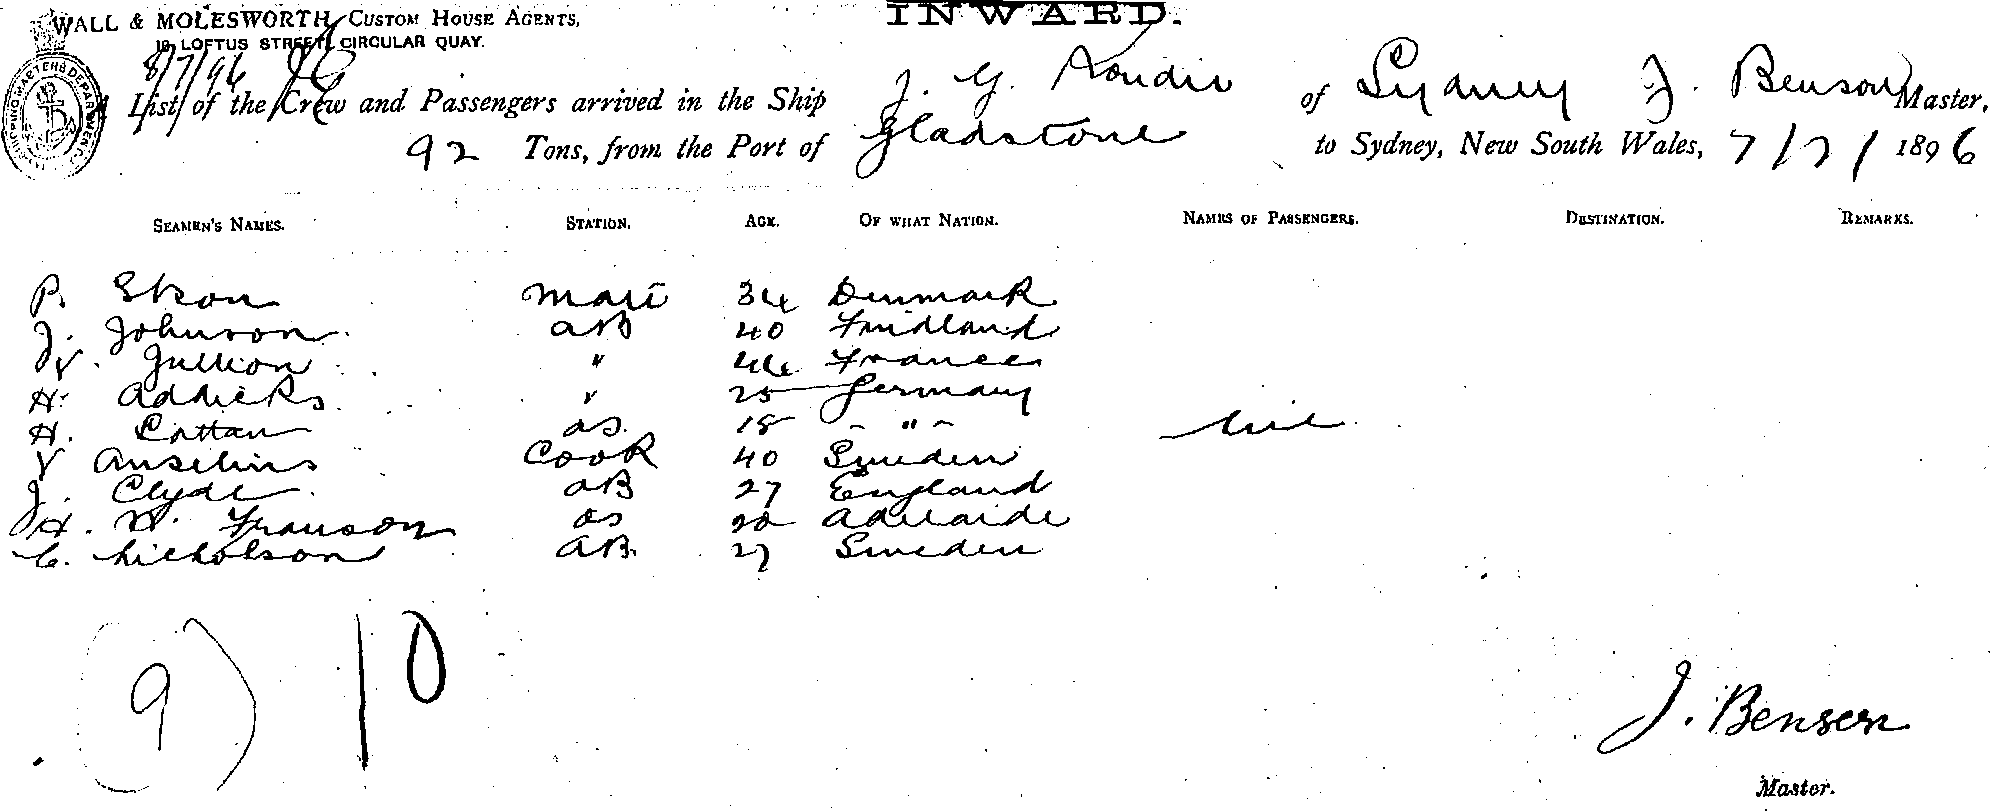 WALL & MOLESWORTH, CUSTOM HOUSE AGENTS,
10, LOFTUS STREET, CIRCULAR QUAY.
INWARD.
8/7/96
SHIPPING MASTERS DEPARTMENT
List of the Crew and Passengers arrived in the Ship J. G. of Sydney J. Benson Master,
92 Tons, from the Port of Gladstone to Sydney, New South Wales, 7/7/1896
SEAMEN'S NAMES. STATION. AGE. OF WHAT NATION. NAMES OF PASSENGERS. DESTINATION. REMARKS.
P. Mate 34 Denmark
J. Johnson AB 40
Jullion " 44 France
H. Addicks " 25 Germany
H. Cottan OS 18 - " - nil
Cook 40 Sweden
J. Clyde AB 27 England
H. W. Franson OS 20 Adelaide
C. Nicholson AB. 27 Sweden
(9) 10
J. Bensen
Master.